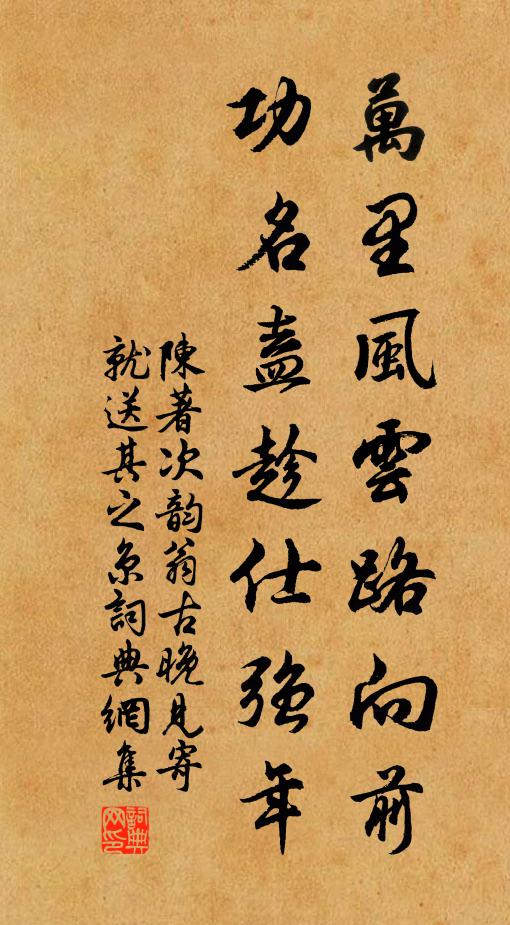 萬里風雲路向前
功名盍趁仕強年
陳著次韵翁古晚見寄
就送其之京詞典網集
詞典网印